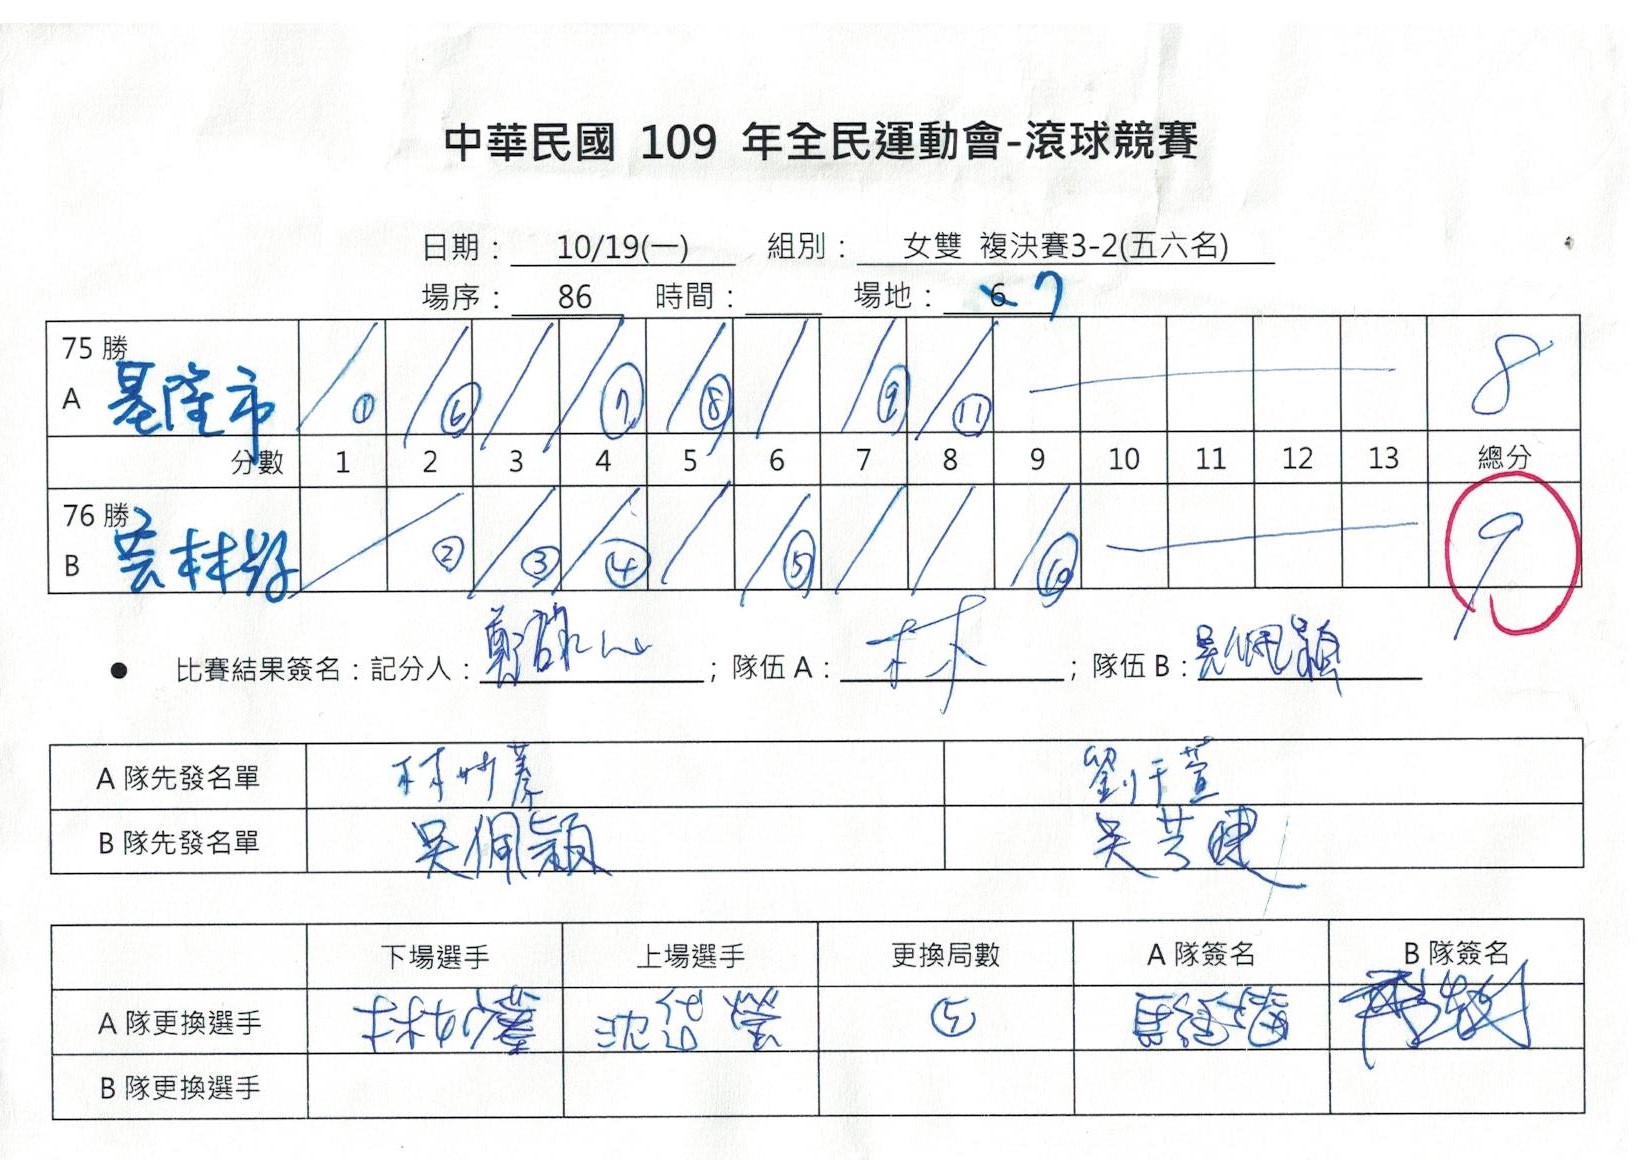 中華民國 109 年全民運動會-滾球競賽
日期： 10/19(一) 組別： 女雙 複決賽3-2(五六名)
場序： 86 時間： 場地： 6 7
75 勝
A 基隆市 ① ⑥ ⑦ ⑧ ⑨ ⑪ 8
分數 1 2 3 4 5 6 7 8 9 10 11 12 13 總分
76 勝
B 雲林縣 ② ③ ④ ⑤ ⑩ 9
● 比賽結果簽名：記分人： ；隊伍 A： 林 ；隊伍 B： 吳佩穎
A 隊先發名單 林妙蓁 劉千萱
B 隊先發名單 吳佩穎
下場選手 上場選手 更換局數 A 隊簽名 B 隊簽名
A 隊更換選手 林妙蓁 ⑤
B 隊更換選手